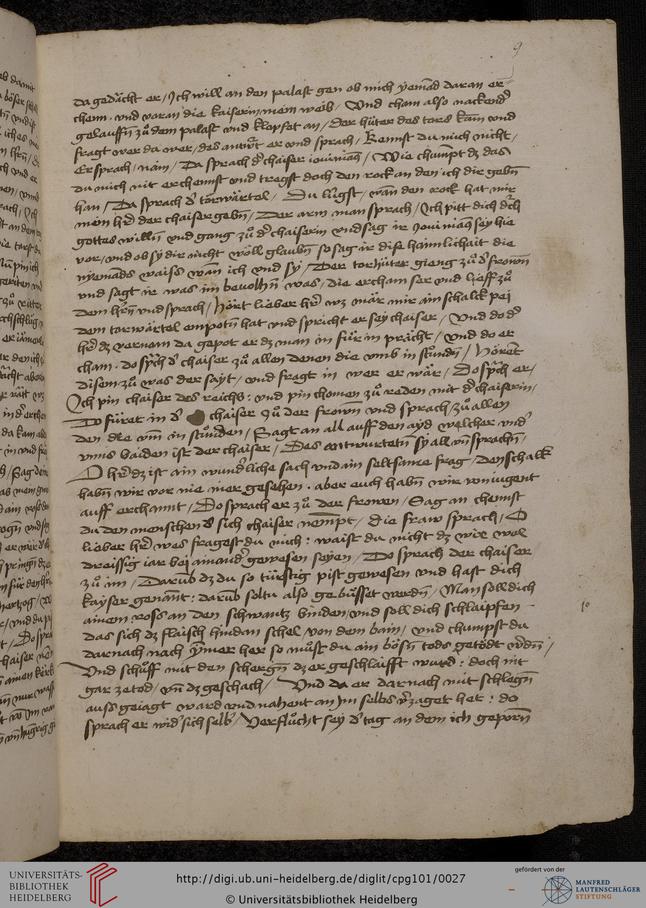 9
da gedächt er / Ich will an den palast gen ob mich yemād daran er-
chenn · vnd voran die kaiserin mein weib / Vnd cham also nackend
geluffn̄ zů dem palast vnd klopfet an / der hüter des tors kam vnd
fragt wer da wer / des antwūrt er vnd sprach / kennst du mich nicht /
Er sprach / nain / Da sprach d' chaiser iouiniā / Wie chumpt dz das
du mich nit erchennst vnd tregst doch den rock an den ich dir gebn̄
han / Da sprach d' torwärtel / Du lügst / wan̄ den rock hat mir
mein hr̄ der chaiser gebn̄ / Der arm man sprach / Ich pitt dich d'ch
gottes willn̄ vnd gang zů d' chaiserin vnd sag ir Jouiniān̄ sey hie
vor / vnd ob sy dir nicht wöll glaubn̄ so sag ir dise haimlichait die
nyemads waiss wan ich vnd sy / Der torhüter gieng zů d' frown̄
vnd sagt ir was im beuolhn̄ was / die ercham ser vnd lieff zů
dem hr̄n̄ vnd sprach / hört lieber hr̄ wz mär mir ain schalck pej
dem torwärtel enpotn̄ hat vnd spricht er sey chaiser / Vnd do d'
hr̄ dz vernam da gepot er dz man in für in prächt / vnd do er
cham · do sp̄ch d' chaiser zů allen denen die vmb in stůndn̄ / Hörent
disem zů was der sayt / vnd fragt in wer er wär / Do sp̄ch er /
Ich pin chaiser des reichs : vnd pin chomen zů reden mit d' chaiserin /
Do fůret in d' chaiser zů der frown vnd sprach / zů allen
den die vm̄ in stůnden / Sagt an all auff den ayd welcher vnd'
vnns baiden ist der chaiser / Des antwurtetn̄ sy all vn̄ sprachn̄ /
O hr̄ dz ist ain wund'liche sach vnd ain seltsame frag / den schalk
habn̄ wir vor nie mer gesehen · aber euch habn̄ wir von iugent
auff erchannt / Do sprach er zů der frowen / Sag an chennst
du den menschen d' sich chaiser nempt / die fraw sprach / O
lieber hr̄ was fragest du mich : waist du nicht dz wir wol
dreissig iar bej ainand' gewesen seyen / Do sprach der chaiser
zů im / Darūb dz du so türstig pist gewesen vnd hast dich
kayser genānt : darūb soltu also gebüsset werdn̄ / Man soll dich
ainem ross an den schwantz binden / vnd soll dich schlaipfen
das sich dz flaisch hindan schel / von dem bain / vnd chumpst du
darnach nach ymer her so můst du ain bösn̄ tods getödt w'dn̄ /
Vnd schůff mit den schergn̄ dz er geschlaifft ward : doch nit
gar zetod / vn̄ dz geschach / Vnd da er darnach mit schlegn̄
auss geiagt ward vnd nahent an im selbs v'zaget het : do
sprach er wid' sich selb' / Verflůcht sey d' tag an dem ich geporn̄
10
UNIVERSITÄTS-
BIBLIOTHEK
HEIDELBERG
http://digi.ub.uni-heidelberg.de/diglit/cpg101/0027
© Universitätsbibliothek Heidelberg
gefördert von der
MANFRED
LAUTENSCHLÄGER
STIFTUNG